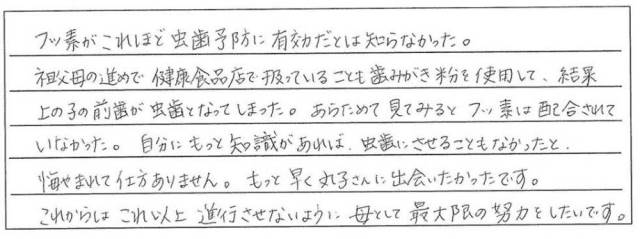 フッ素がこれほど虫歯予防に有効だとは知らなかった。
祖父母の進めで健康食品店で扱っているこども歯みがき粉を使用して、結果
上の子の前歯が虫歯となってしまった。あらためて見てみるとフッ素は配合されて
いなかった。自分にもっと知識があれば、虫歯にさせることもなかったと、
悔やまれて仕方ありません。もっと早く丸子さんに出会いたかったです。
これからはこれ以上進行させないように母として最大限の努力をしたいです。